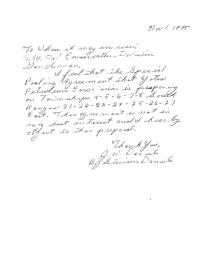 Nov 1, 1985
To Whom it may concern:
N.M. Oil Conservation Division
Gentlemen,
I feel that the Special
Pooling Agreement that Yates
Petroleum Corp. is proposing
on Townships 4-5-6-7-8 South
Ranges 21-22-23-24-25-26-27
East. This agreement is not in
my best interest and I hereby
object to this proposal.
Thank You,
By